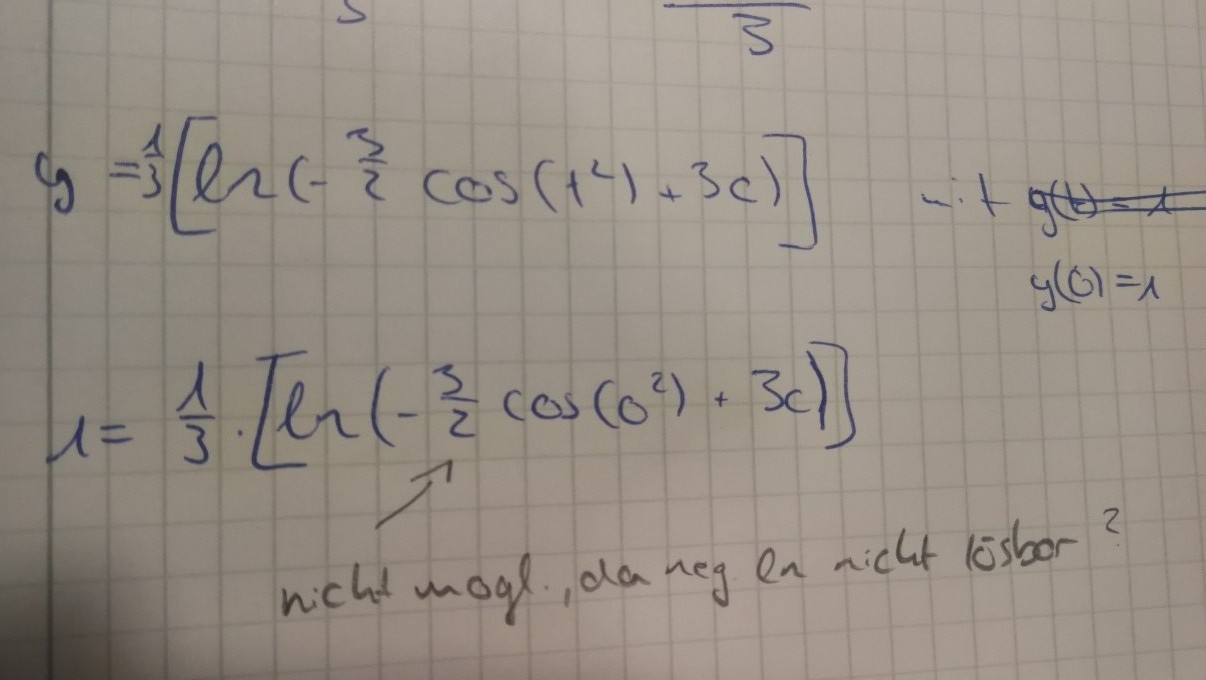 3
y = 1/3 [ln(- 3/2 cos(t²) + 3c)] mit y(t) = 1
y(0) = 1
1 = 1/3 · [ln(- 3/2 cos(0²) + 3c)]
nicht mögl., da neg ln nicht lösbar?